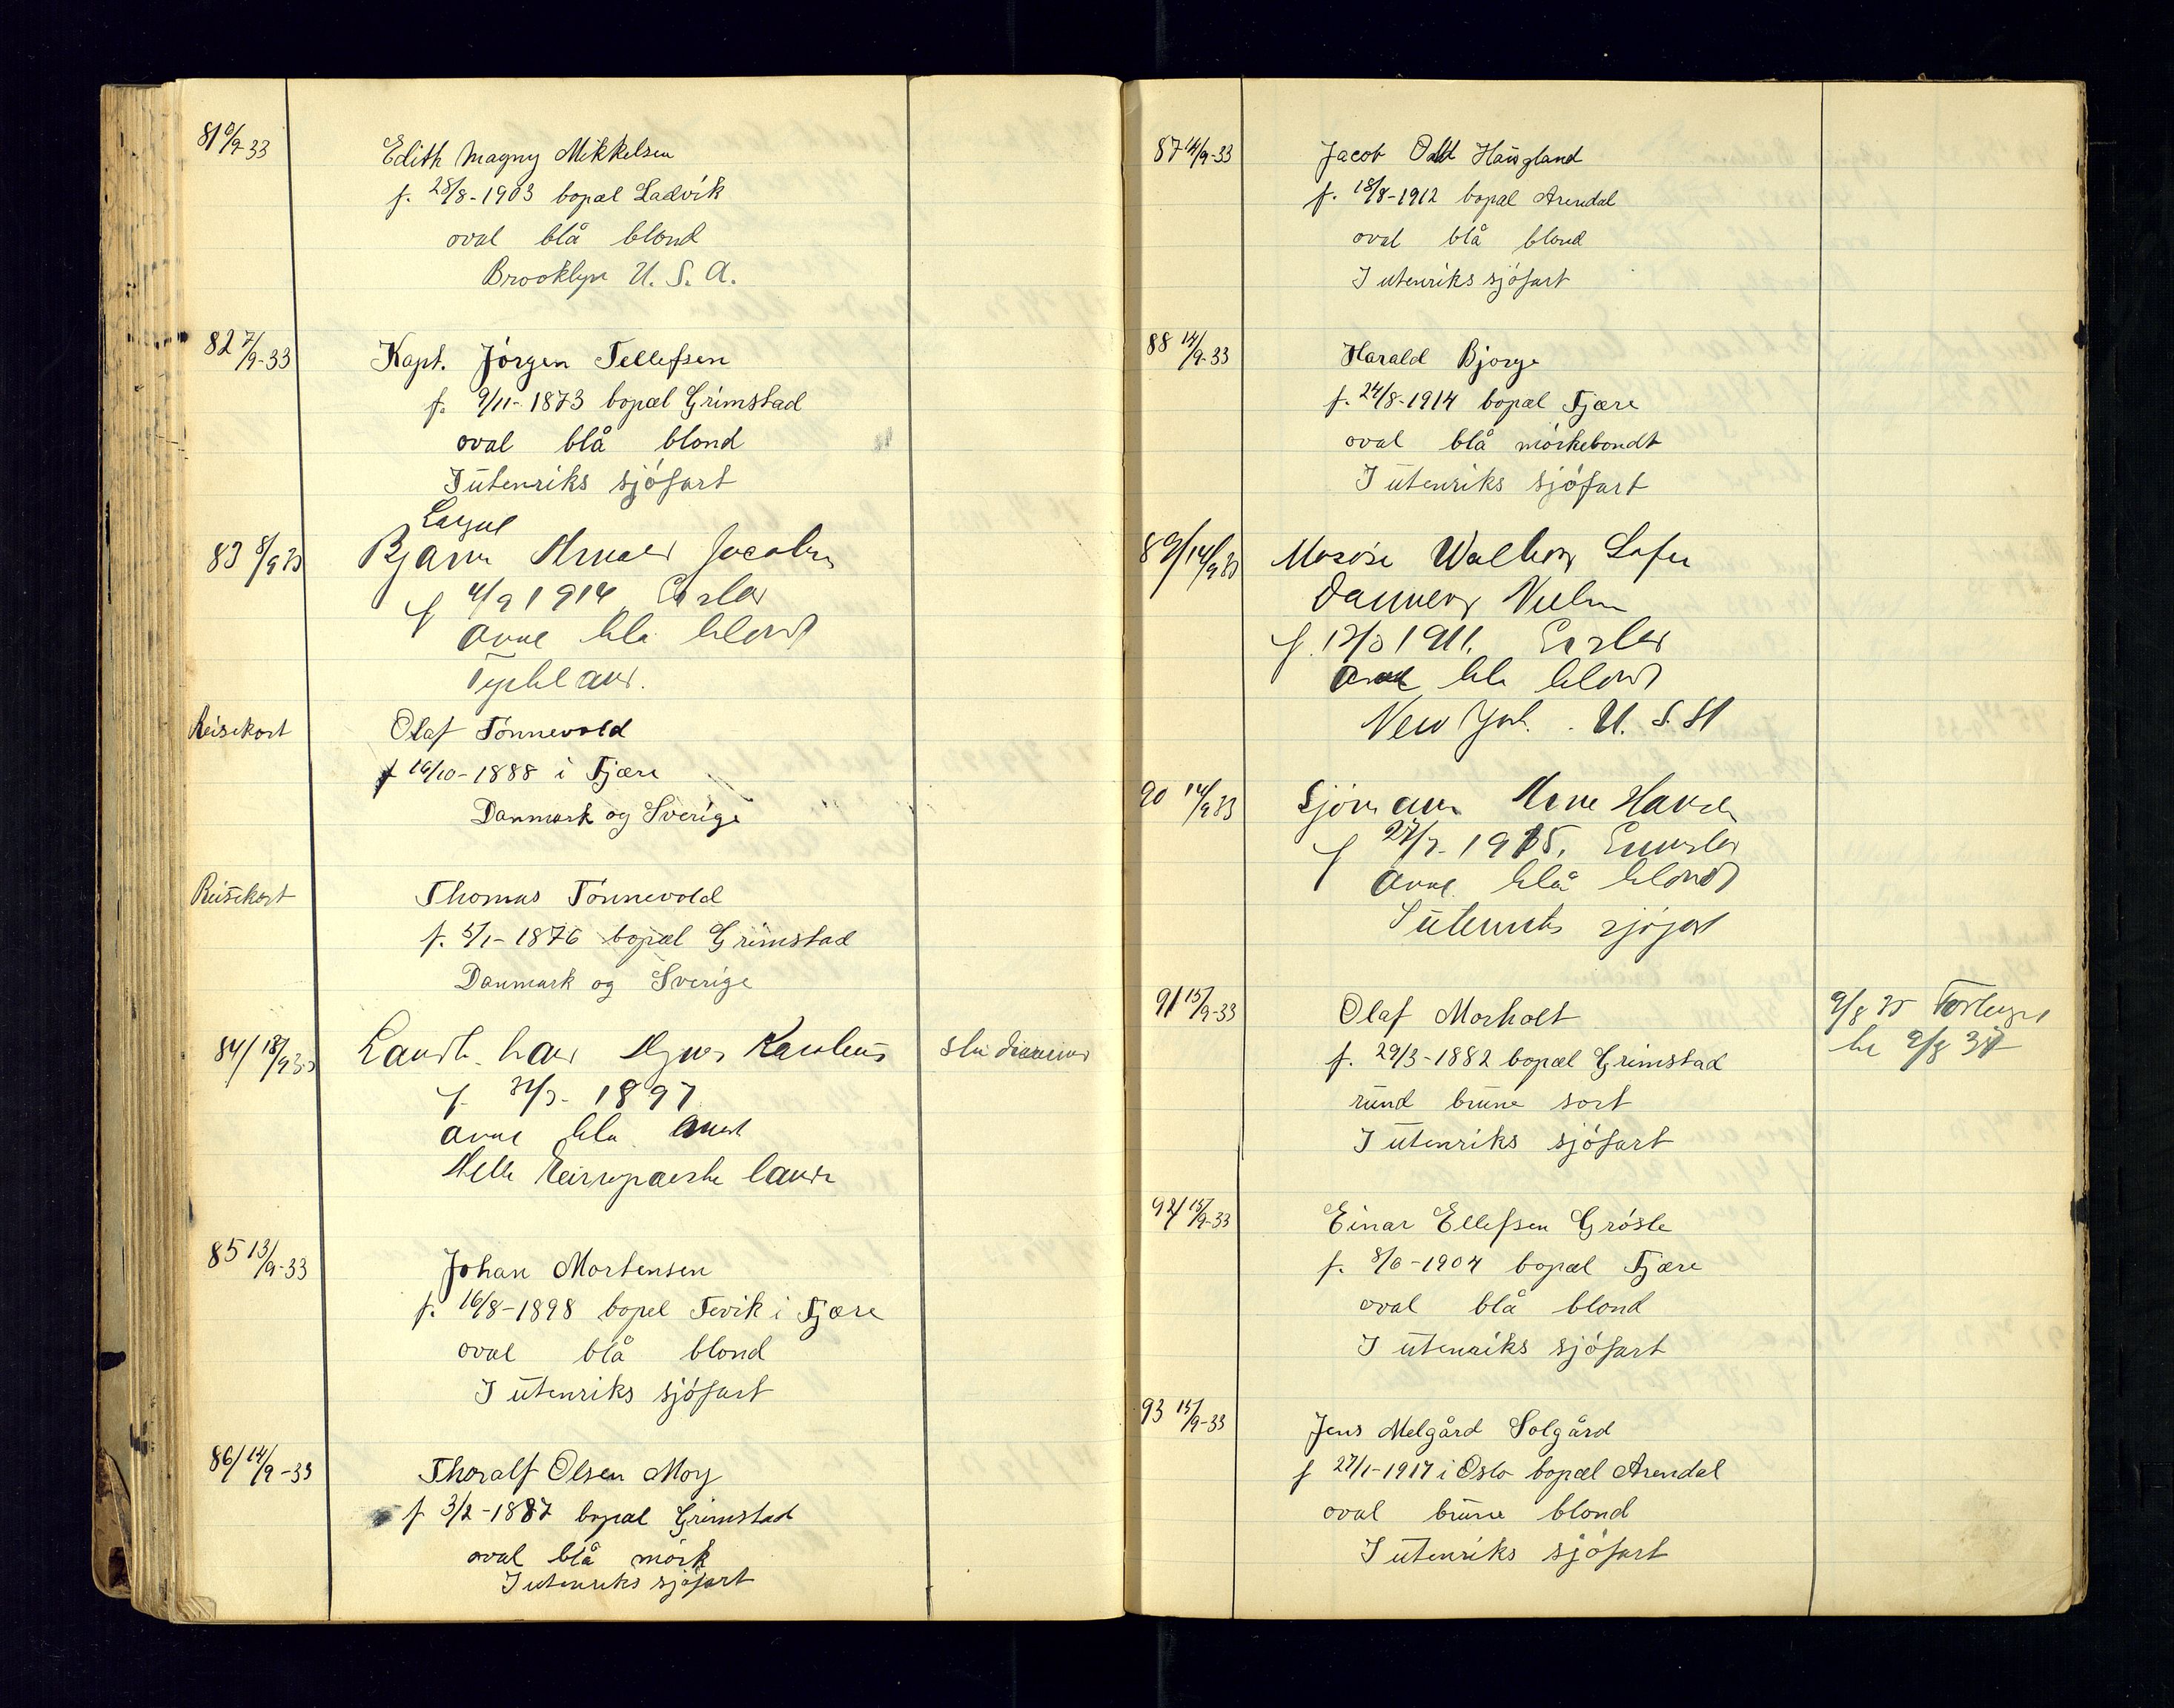 81 6/9-33
Edith Magny Mikkelsen
f. 28/8-1903 bopæl Ladvik
oval blå blond
Brooklyn U. S. A.
82 7/9-33
Kapt. Jörgen Tellefsen
f. 9/11-1873 bopæl Grimstad
oval blå blond
I utenriks sjöfart
83 8/9 33
Bjarne Jacobsen
f 4/9 1914
blå blond
Tyskland.
Reisekort
Olaf Tönnevold
f 16/10-1888 i Fjære
Danmark og Sverige
Reisekort
Thomas Tönnevold
f. 5/1-1876 bopæl Grimstad
Danmark og Sverige
84/ 13/9 33
f. 1897
blå
Alle Europæiske lande
85 13/9-33
Johan Mortensen
f. 16/8-1898 bopel Fevik i Fjære
oval blå blond
I utenriks sjöfart
86/ 14/9-33
Thoralf Olsen Moy
f 3/2-1887 bopæl Grimstad
oval blå mörk
I utenriks sjöfart
87 14/9-33
Jacob Odd Haugland
f. 18/8-1912 bopæl Arendal
oval blå blond
I utenriks sjöfart
88 14/9-33
Harald Bjorge
f. 24/8-1914 bopæl Fjære
oval blå mörkebondt
I utenriks sjöfart
89/ 14/9 33
f. 1911.
blå blond
New York. U. S. A
90 14/9 33
Sjömann Arne Hansen
f 1915.
blå blond
I utenriks sjöfart
91 15/9-33
Olaf Morholt
f. 29/3-1882 bopæl Grimstad
rund brune sort
I utenriks sjöfart
9/8 35 Forlenget
til 9/8 37
92/ 15/9-33
Einar Ellefsen Gröste
f. 8/6-1904 bopæl Fjære
oval blå blond
I utenriks sjöfart
93 15/9-33
Jens Melgård Solgård
f 27/1-1917 i Oslo bopæl Arendal
oval brune blond
I utenriks sjöfart